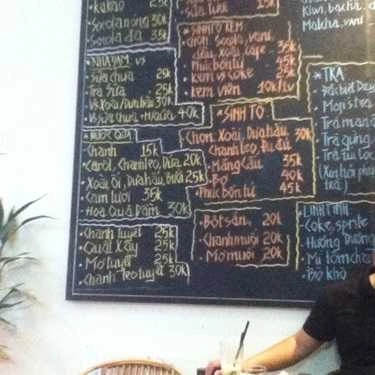 kakao 25k
Socola nóng 30k
Socola đá 35k
NHA ĐAM vs
Sữa chua 25k
Trà sữa 25k
Vs Xoài/Dưa hấu 30k
Vs Sữa chua 40k
NƯỚC QUẢ
Chanh 15k
Carot, Chanh leo, Dưa 20k
Xoài, ổi, Dưa hấu, Bưởi 25k
Cam tươi 35k
Hoa Quả Dầm 30k
Chanh tuyết 25k
Quất Xay 25k
Mơ tuyết 25k
Chanh leo tuyết 30k
Sữa tươi 15k
SINH TỐ KEM
Chọn Socola, vani
dâu, xoài, cafe 35k
Phúc bồn tử 45k
Kem vs Coke 25k
Kem viên 10k/1v
*SINH TỐ
Chọn Xoài, Dưa hấu, 30k
Chanh leo, Đu đủ
Mãng Cầu 35k
Bơ 40k
Phúc bồn tử 45k
Bột sắn 20k
Chanh muối 20k
Mơ muối 20k
Kiwi, bacha, d
Matcha, vani
*TRÀ
Đặc biệt Day
Mojs tea
Trà mạn
Trà gừng
Trà túi lọc
trà)
LINH TINH
Coke, sprite
Hướng Dương
Mì tôm
Bò khô